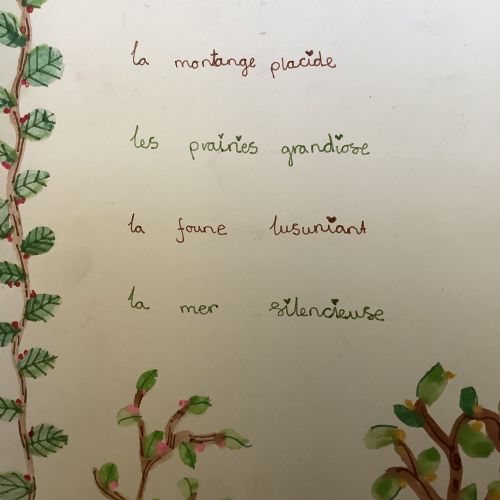 la montange placide
les prairies grandiose
la foune lusuniant
la mer silencieuse